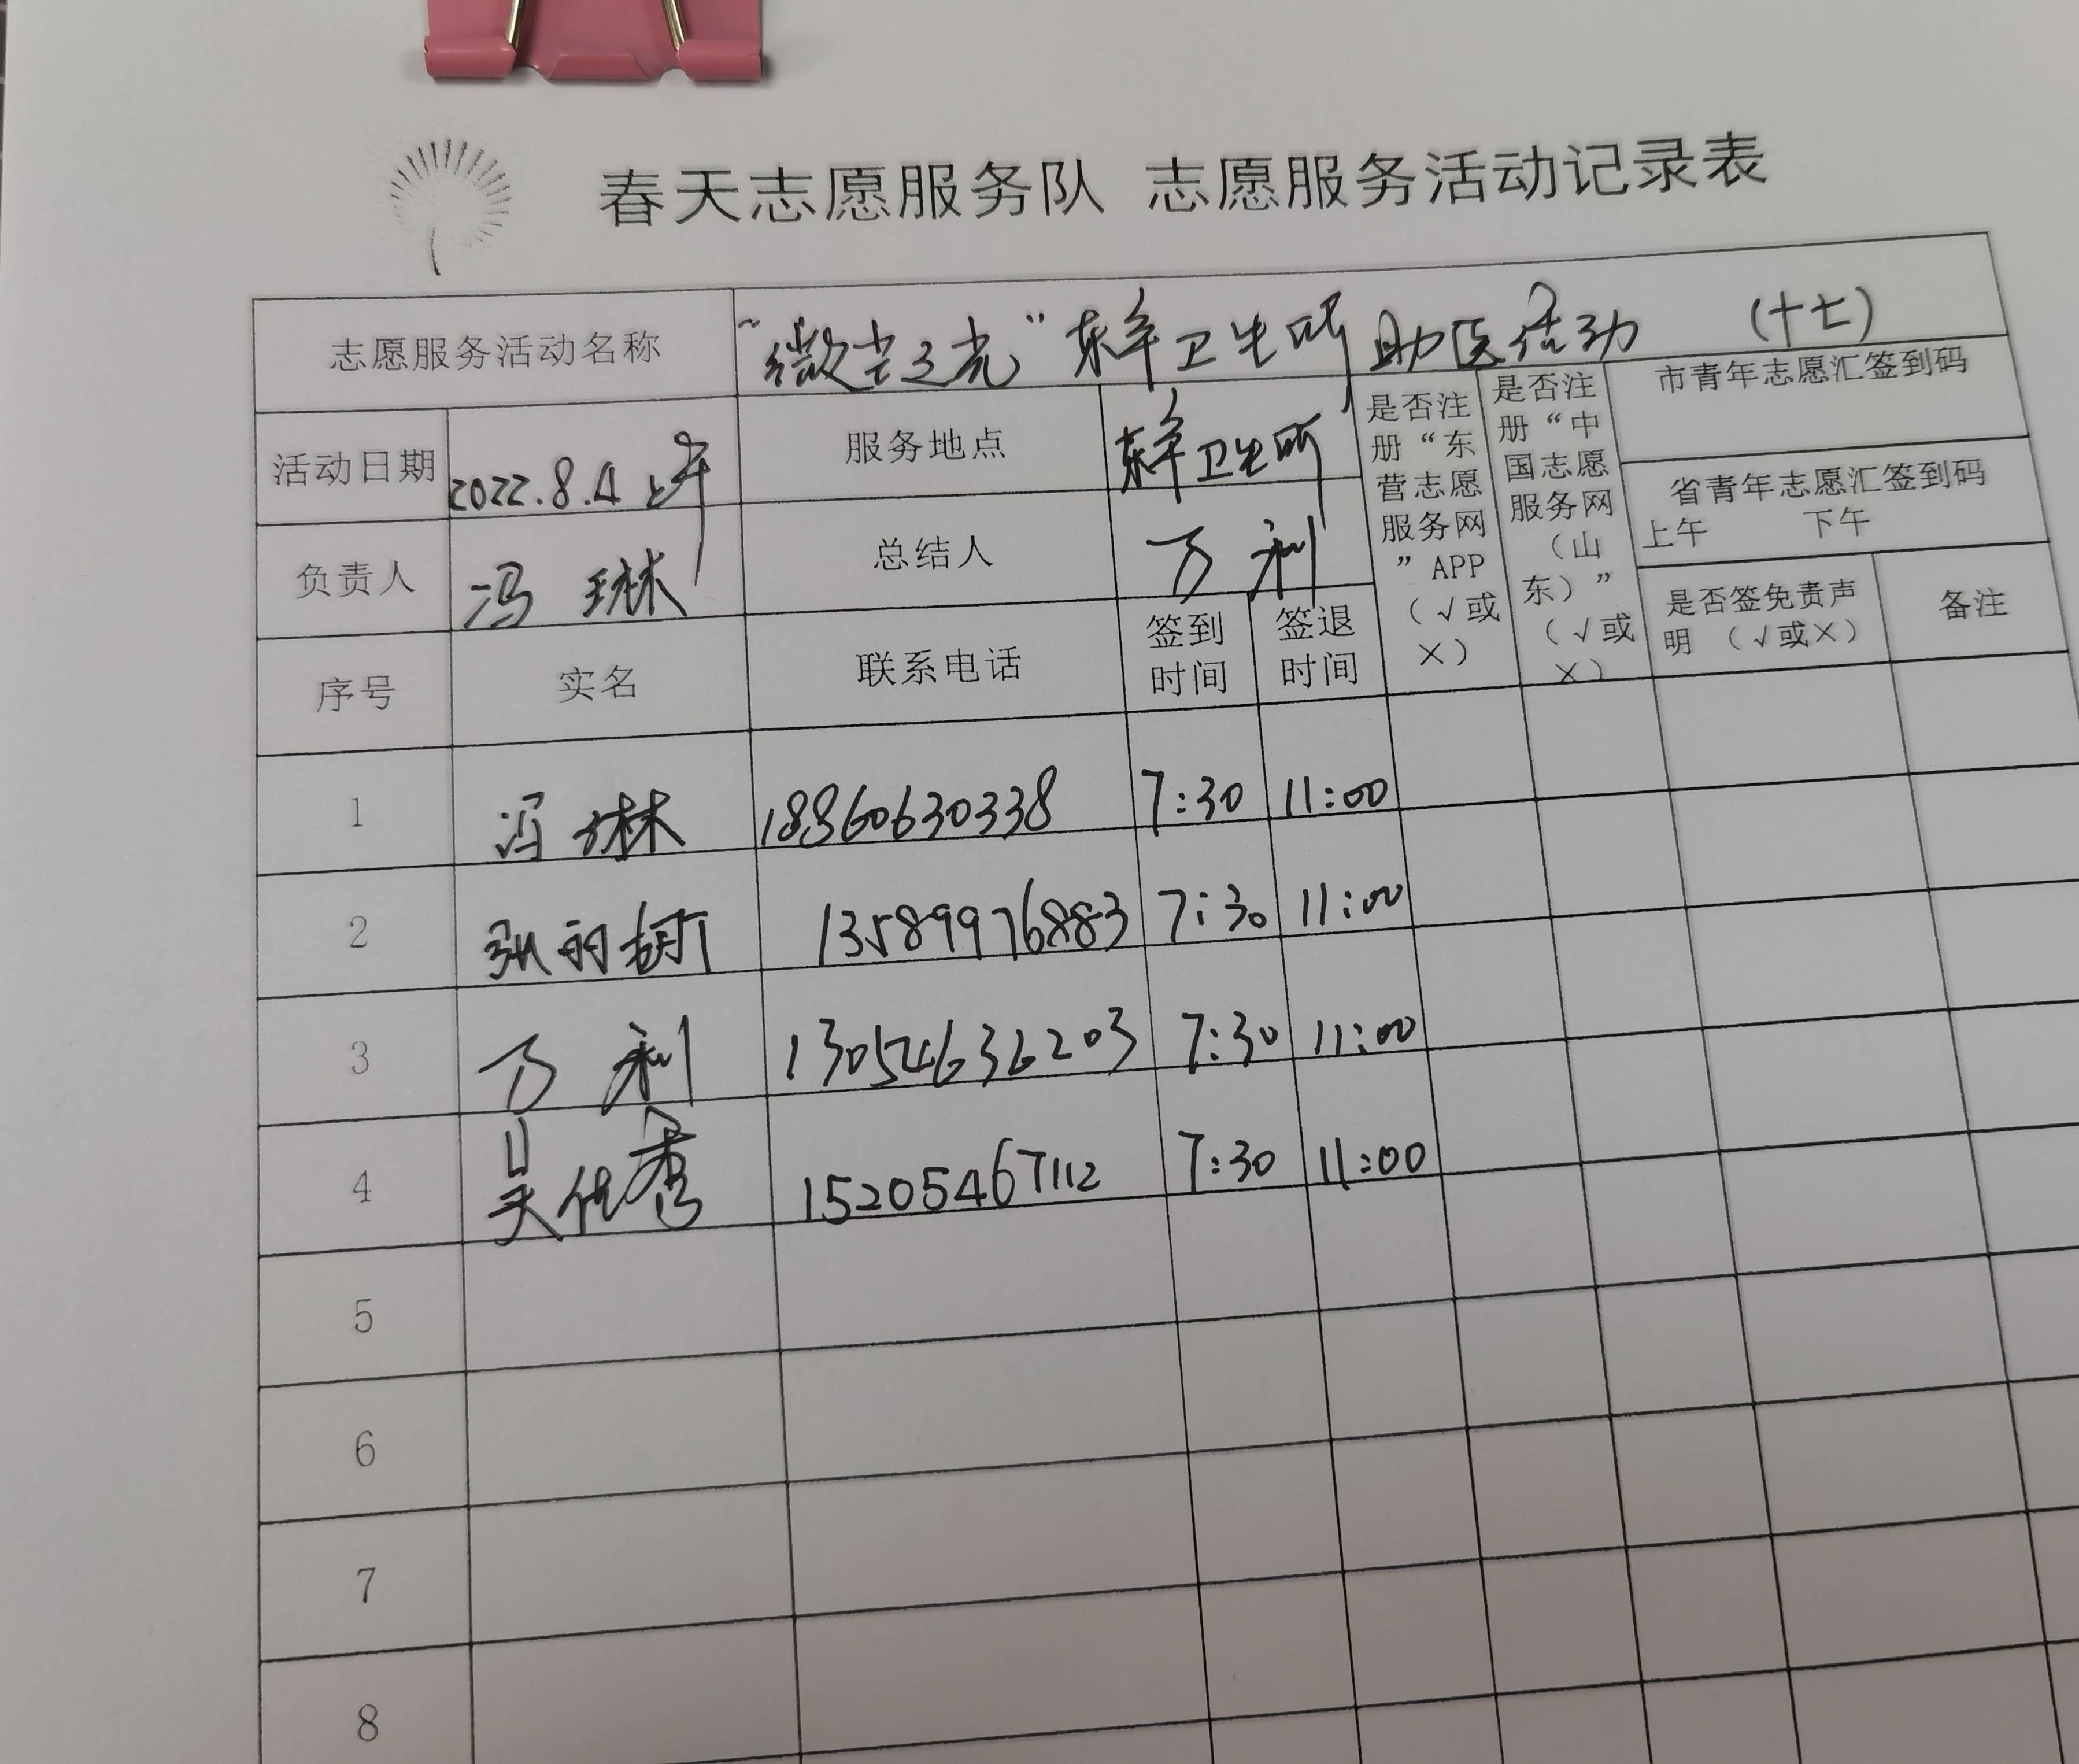 春天志愿服务队 志愿服务活动记录表
志愿服务活动名称 “微芒之光” 卫生所 助医活动 (十七)
活动日期 2022.8.4 上午 服务地点 卫生所
负责人 冯琳 总结人 万利
是否注册“东营志愿服务网”APP（√或×）
是否注册“中国志愿服务网（山东）”（√或×）
市青年志愿汇签到码
省青年志愿汇签到码
上午 下午
序号 实名 联系电话 签到时间 签退时间 是否签免责声明（√或×） 备注
1 冯琳 18860630338 7:30 11:00
2 13589976883 7:30 11:00
3 万利 13054636203 7:30 11:00
4 吴 秀 15205467112 7:30 11:00
5
6
7
8